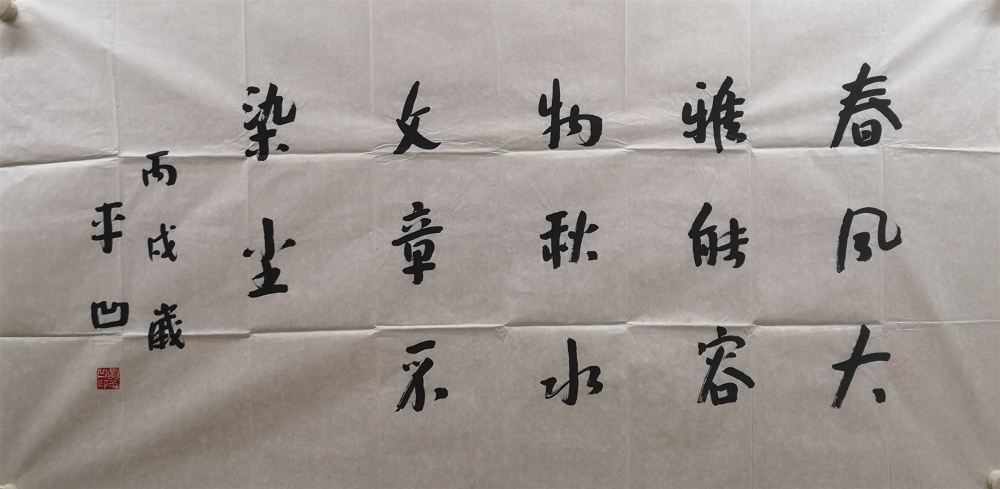 春风大
雅能容
物秋水
文章不
染尘
丙戌歲
平凹